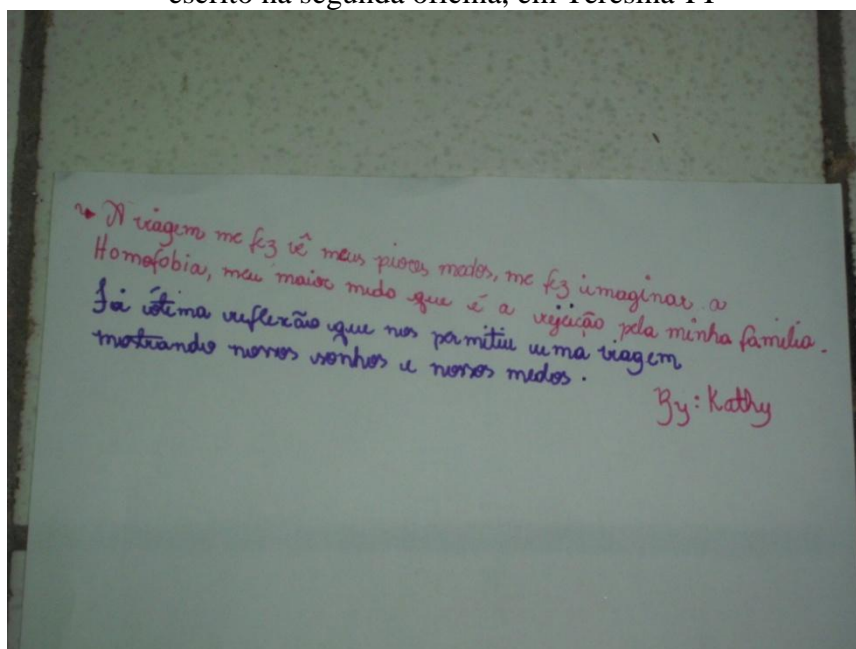 escrito na segunda oficina, em Teresina-PI
A viagem me fez vê meus piores medos, me fez imaginar a
Homofobia, meu maior medo que é a rejeição pela minha família.
foi ótima reflexão que nos permitiu uma viagem
mostrando nossos sonhos e nossos medos.
By: Kathy